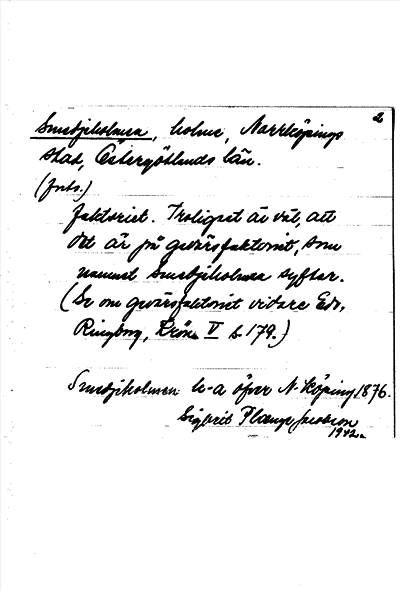 2
Smedjeholmen, holme, Norrköpings
stad, Östergötlands län.
(forts.)
faktoriet. Troligast är väl, att
det är på gevärsfaktoriet, som
namnet Smedjeholmen syftar.
(Se om gevärsfaktoriet vidare Edv.
Ringborg, Krön. V s. 179.)
Smedjeholmen k-a öfver N.köping 1876.
Sigfrid Plænge Jacobson
1942.